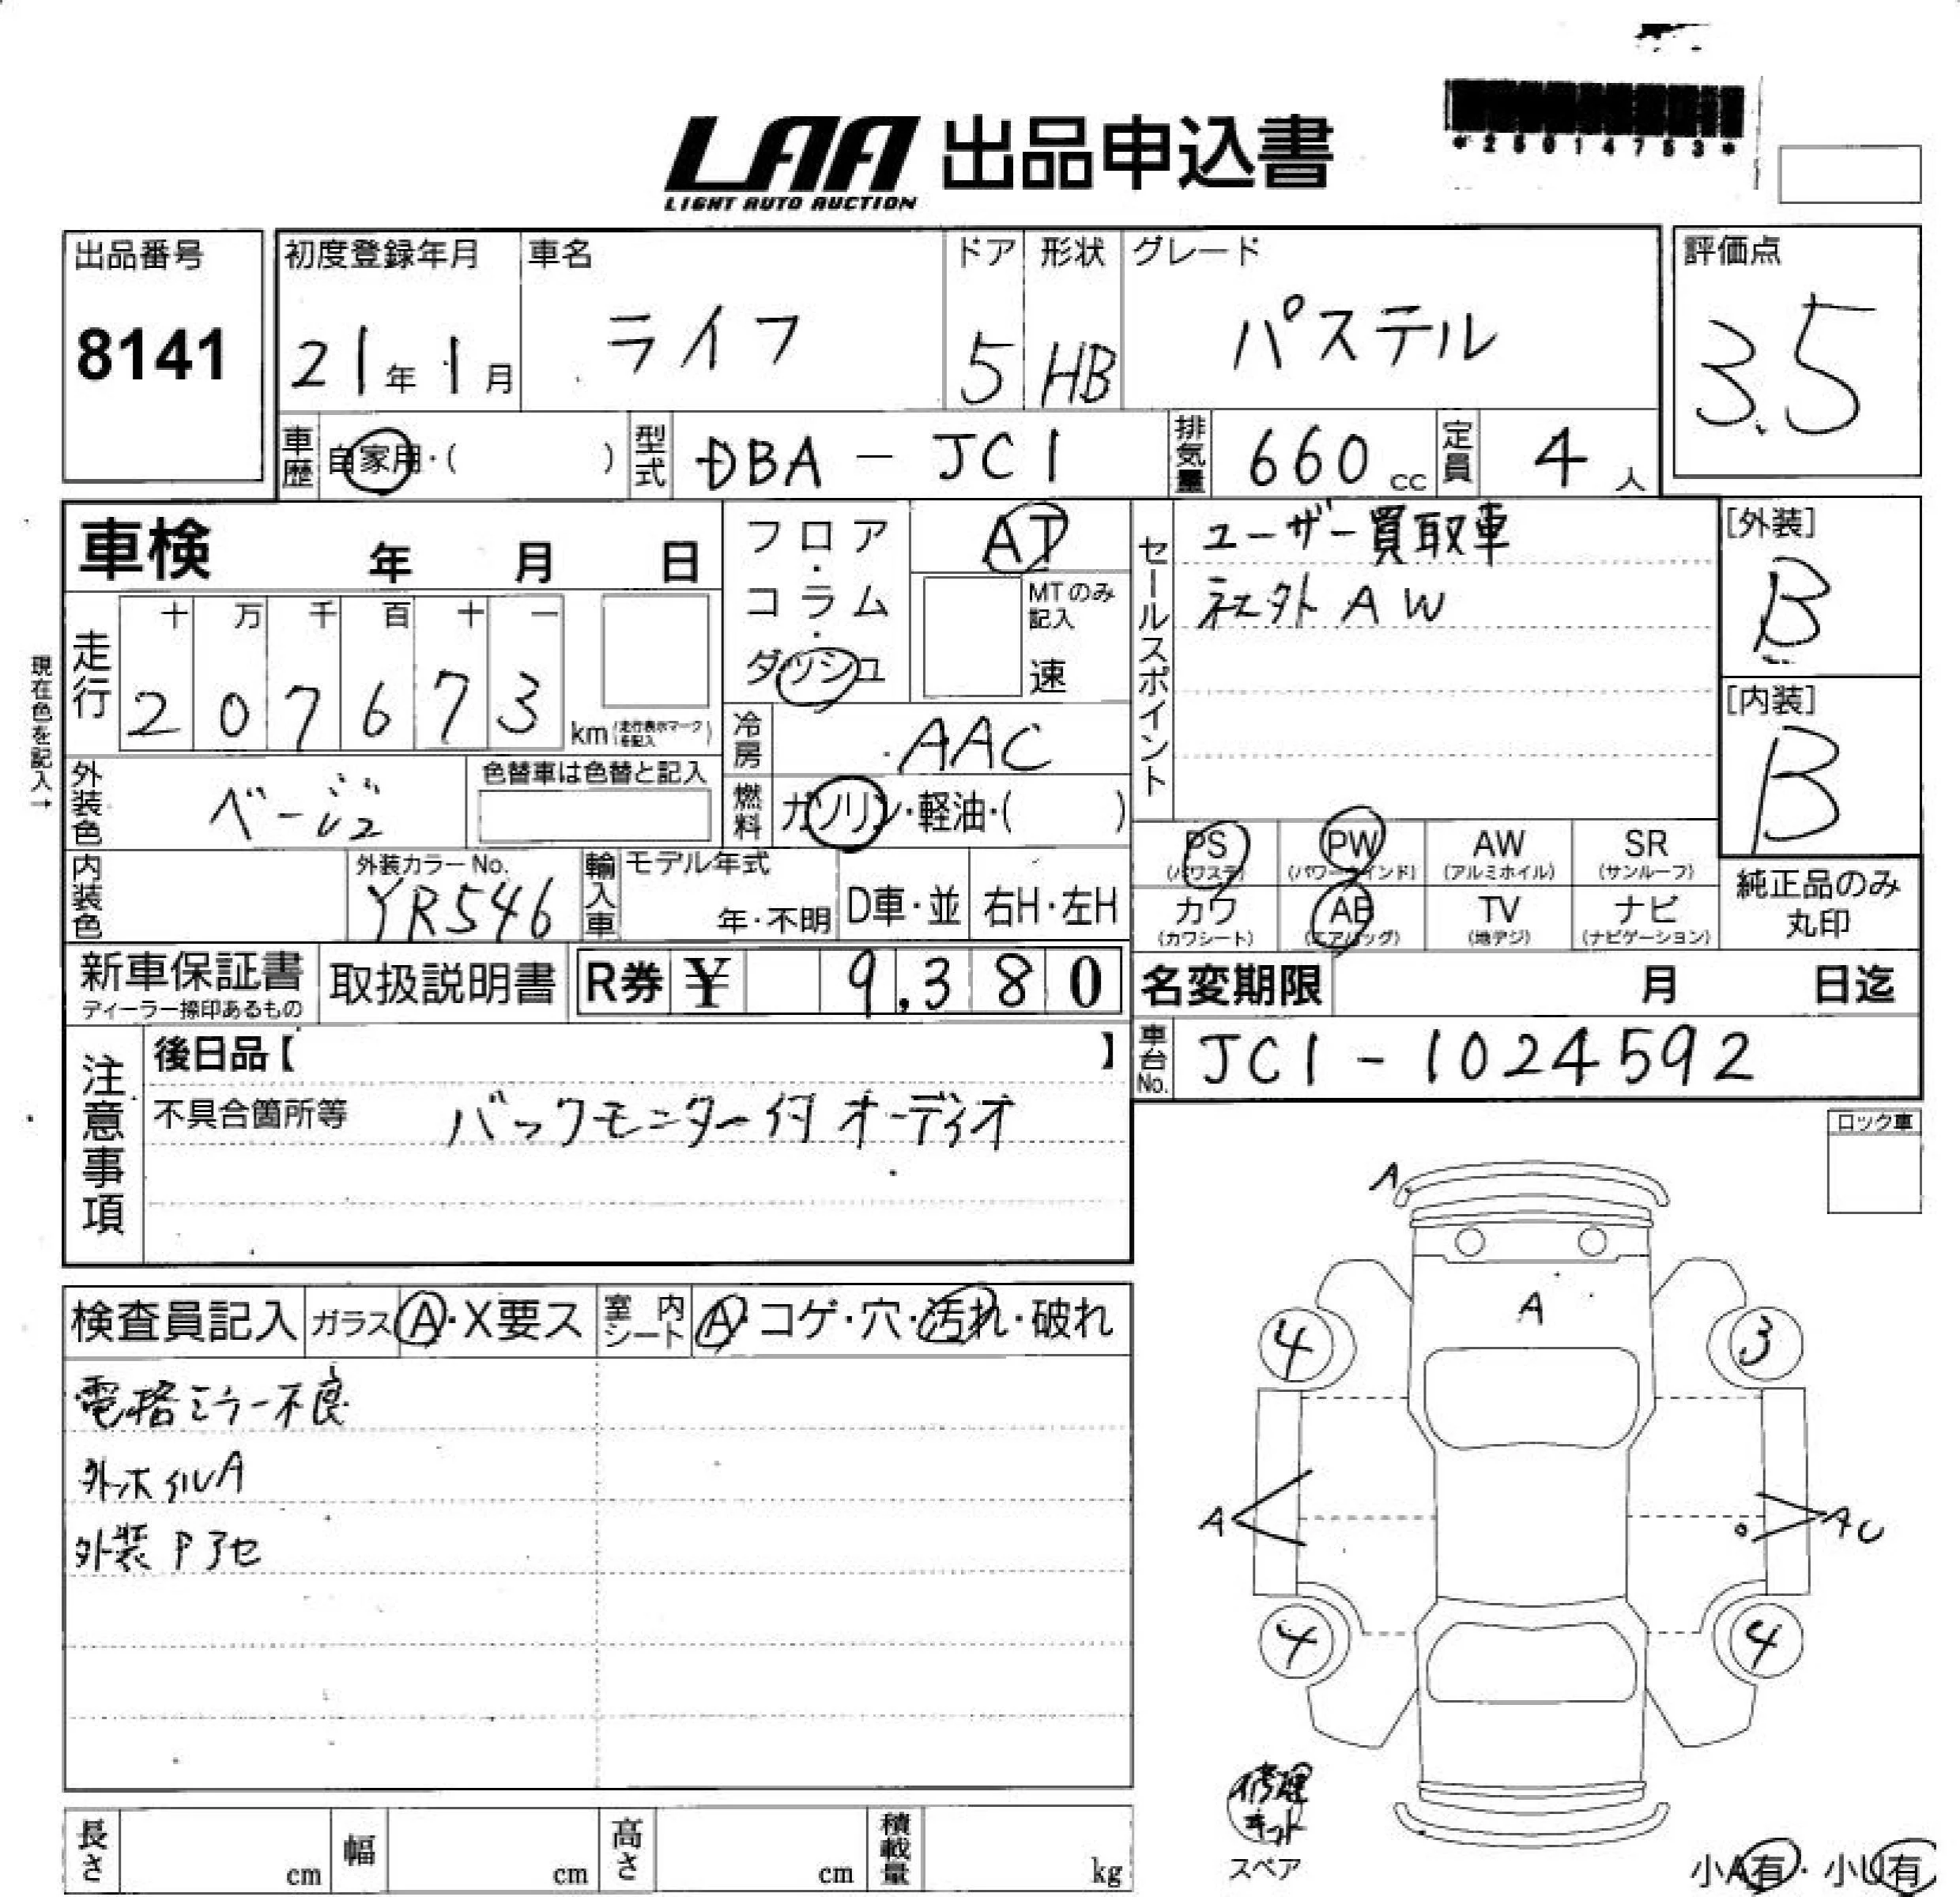 *25014753*
LAA 出品申込書
LIGHT AUTO AUCTION
出品番号
8141
初度登録年月
21年1月
車名
ライフ
ドア
5
形状
HB
グレード
パステル
評価点
3.5
車歴
自家用・( )
型式
DBA-JC1
排気量
660 cc
定員
4人
車検 年 月 日
フロア・コラム・ダッシュ
AT
MTのみ記入
速
セールスポイント
ユーザー買取車
社外AW
[外装]
B
[内装]
B
現在色を記入→
走行
十 万 千 百 十 一
2 0 7 6 7 3
km(走行表示マークを記入)
冷房
AAC
外装色
ベージュ
色替車は色替と記入
燃料
ガソリン・軽油・( )
PS
(パワステ)
PW
(パワーウインド)
AW
(アルミホイル)
SR
(サンルーフ)
カワ
(カワシート)
AB
(エアバッグ)
TV
(地デジ)
ナビ
(ナビゲーション)
純正品のみ
丸印
内装色
外装カラーNo.
YR546
輸入車
モデル年式
年・不明
D車・並
右H・左H
新車保証書
ディーラー捺印あるもの
取扱説明書
R券 ¥ 9,380
名変期限 月 日迄
車台No.
JC1-1024592
注意事項
後日品【 】
不具合箇所等
バックモニター付オーディオ
ロック車
検査員記入
ガラス A・X要ス
室内シート A・コゲ・穴・汚れ・破れ
電格ミラー不良
外ホイルA
外装Pアセ
A
A
4
3
A
AU
4
4
修理キット
スペア
小A有・小U有
長さ cm
幅 cm
高さ cm
積載量 kg